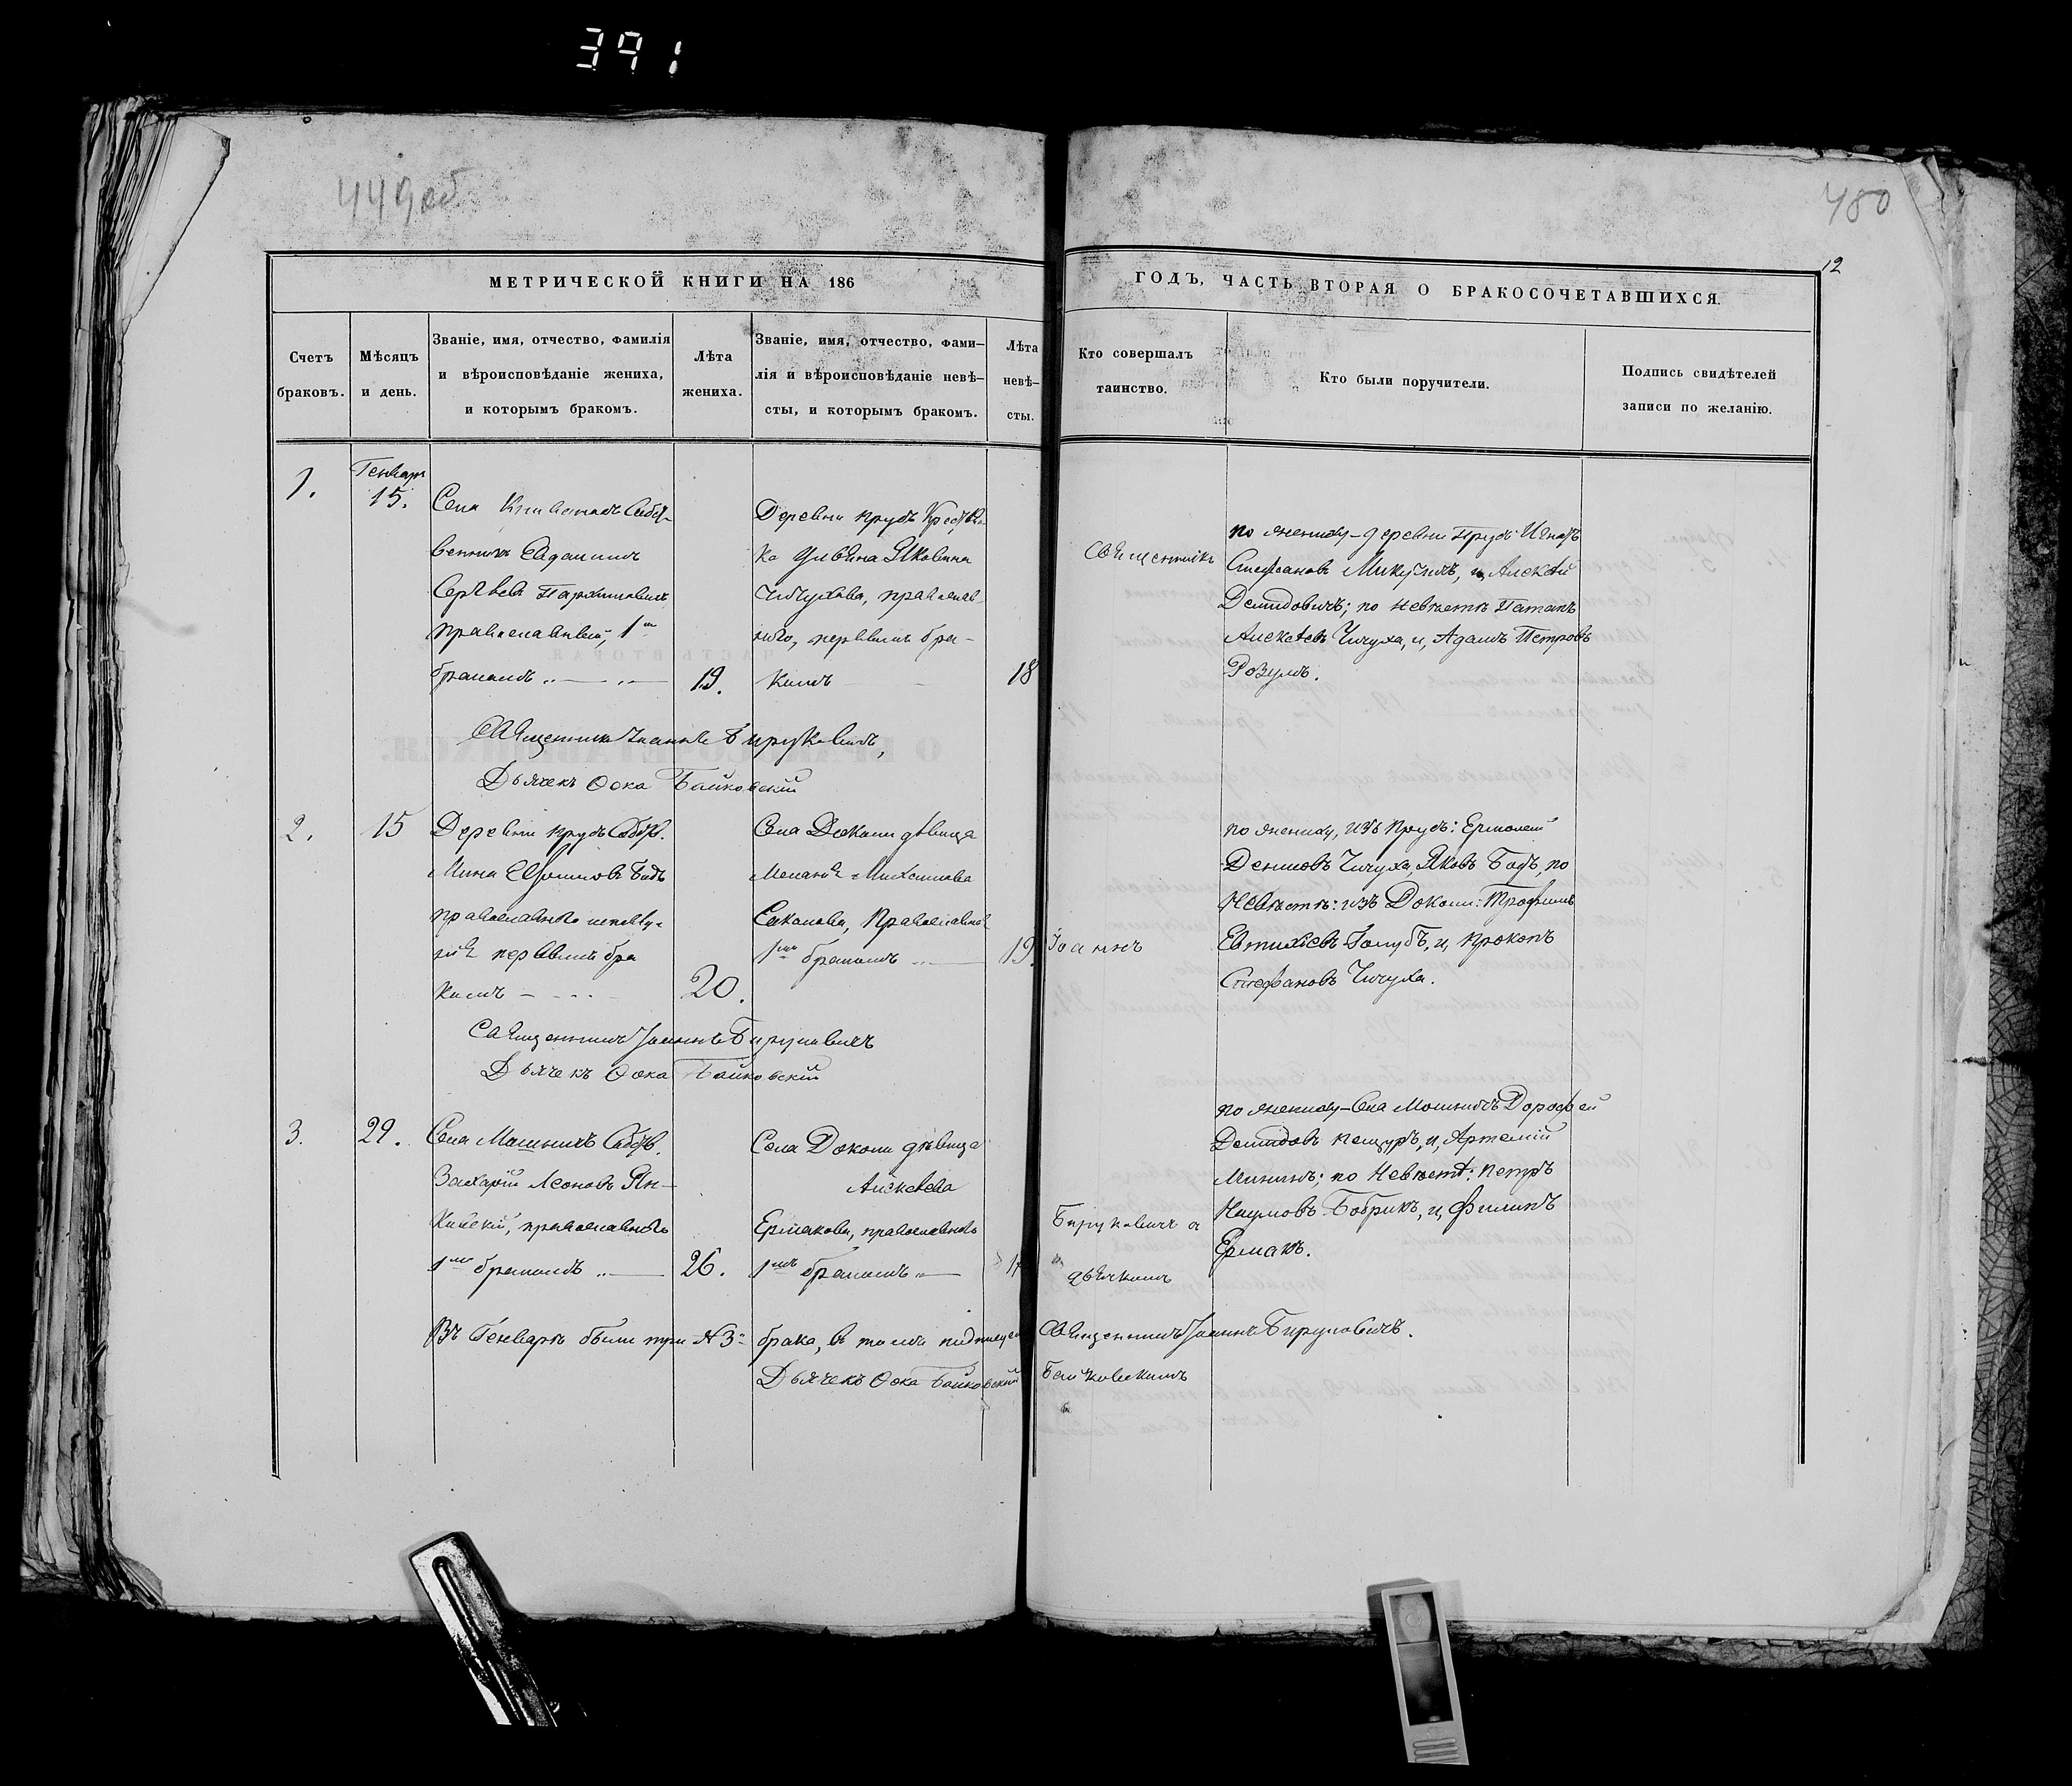 391
449 об
480
12
МЕТРИЧЕСКОЙ КНИГИ НА 186
ГОДЪ, ЧАСТЬ ВТОРАЯ О БРАКОСОЧЕТАВШИХСЯ.
Счетъ браковъ.
Мѣсяцъ и день.
Званіе, имя, отчество, фамилія
и вѣроисповѣданіе жениха,
и которымъ бракомъ.
Лѣта жениха.
Званіе, имя, отчество, фами-
лія и вѣроисповѣданіе невѣ-
сты, и которымъ бракомъ.
Лѣта невѣ-
сты.
Кто совершалъ
таинство.
Кто были поручители.
Подпись свидѣтелей
записи по желанію.
1.
Генваря
15.
Села
Сергѣевъ
православный, 1м
бракомъ
19.
Деревни Прудъ
ка Ульяна Яковлева
Чичухова, православ-
наго, первымъ бра-
комъ
18
Священникъ
по жениху - деревни Прудъ Игнатъ
Стефановъ Микуличъ, и, Алексѣй
Демидовичъ; по невѣстѣ Патапъ
Алексѣевъ Чичуха, и, Адамъ Петровъ
Розумъ.
Священникъ Іоаннъ Бируковичъ,
Дьячекъ Ѳока Байковскій
2.
15
Деревни Прудъ
Мина
православнаго исповѣда-
нія первымъ бра
комъ
20.
Села Докои дѣвица
Меланія Михаилова
Православнаго
1мъ бракомъ
19.
Іоаннъ
по жениху, изъ Прудъ: Ермолай
Денисовъ Чичуха, Яковъ Бодъ, по
невѣстѣ: изъ Докои: Трофимъ
Евтихіевъ Голубъ, и, Прокопъ
Стефановъ Чичуха.
Священникъ Іоаннъ Бируковичъ
Дьячекъ Ѳока Байковскій
3.
29.
Села
Захарій Леоновъ Ян-
православнаго
1мъ бракомъ
26.
Села Докои дѣвица
Алексѣева
Ермакова, православнаго
1мъ бракомъ
Бируковичъ съ
дьячкомъ
Байковскимъ
по жениху - Села Дорофей
Демидовъ и, Артемій
Мининъ; по невѣстѣ: Петръ
Наумовъ Бобрикъ, и, Филипъ
Ермакъ.
Въ Генварѣ были три №3: брака, въ томъ подпис Священникъ Іоаннъ Бируковичъ.
Дьячекъ Ѳока Байковскій